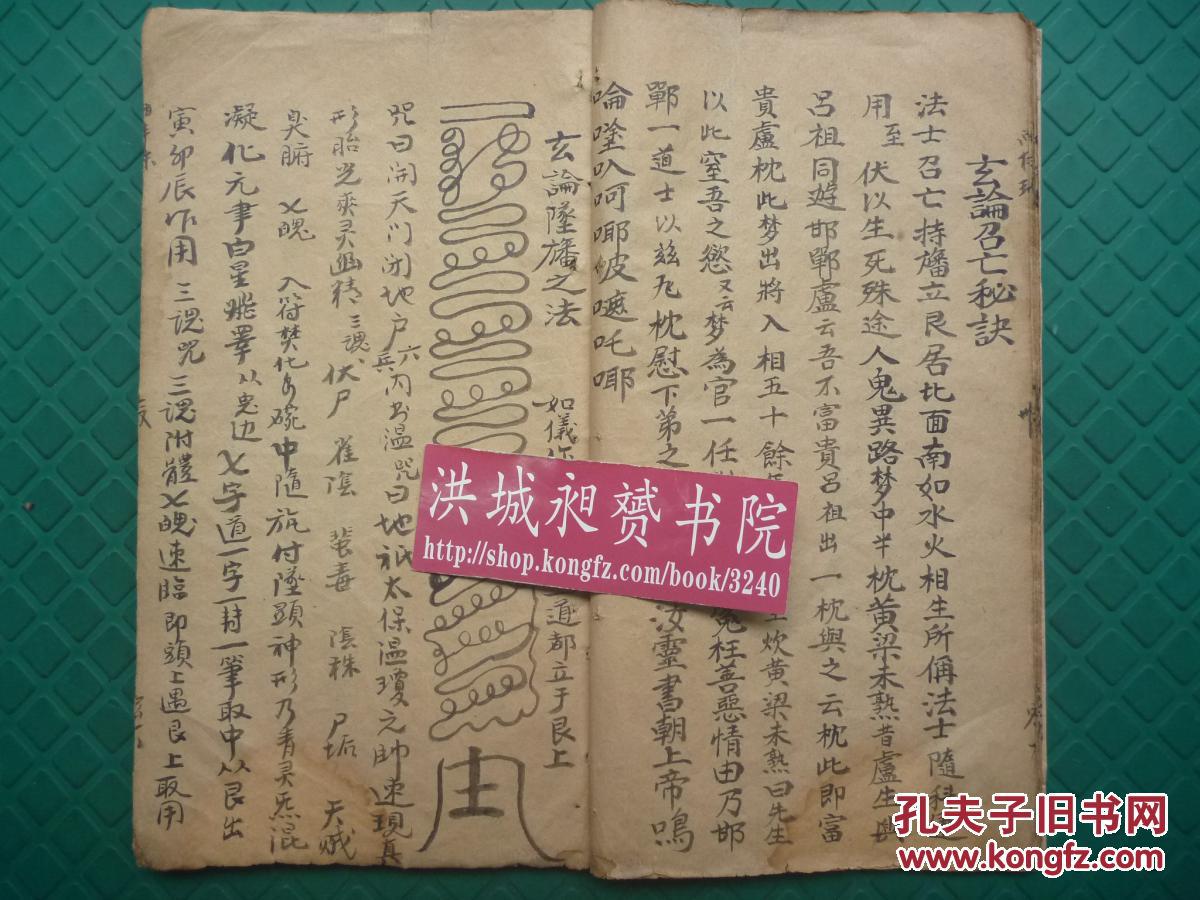 玄論召亡秘訣
法士召亡持旛立艮居北面南如水火相生所稱法士隨科
用至 伏以生死殊途人鬼異路梦中半枕黄梁未熟昔盧生與
呂祖同遊邯鄲盧云吾不富貴呂祖出一枕與之云枕此即富
貴盧枕此梦出將入相五十餘 炊黄梁未熟曰先生
以此窒吾之慾又云梦為官一任 冤枉善惡情由乃邯
鄲一道士以兹九枕慰下第之 汝靈書朝上帝鳴
唵㗌叺呵唧皮 吒唧
玄論墜旛之法 如儀 道都立于艮上
咒曰 天门闭地户 六丙 温咒曰地祇太保温瓊元帅速現真
形胎光爽灵幽精 三魂 伏尸 雀陰 蜚毒 陰株 尸垢 天贼
臭腑 七魄 入符焚化 碗中隨旐付墜顕神形乃青灵炁混
凝化元 白星 七字道一字一封一筆取中从艮出
寅卯辰作用 三魂咒 三魂附體七魄速臨即頭上遇艮上取用
洪城昶赟书院
http://shop.kongfz.com/book/3240
孔夫子旧书网
www.kongfz.com